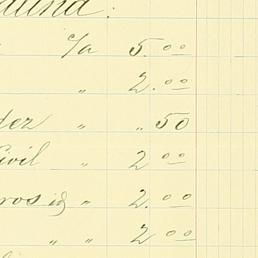 c/a 5.00
„ 2.00
dez „ „ 50
Civil „ 2.00
ros ig „ 2.00
„ „ 2.00